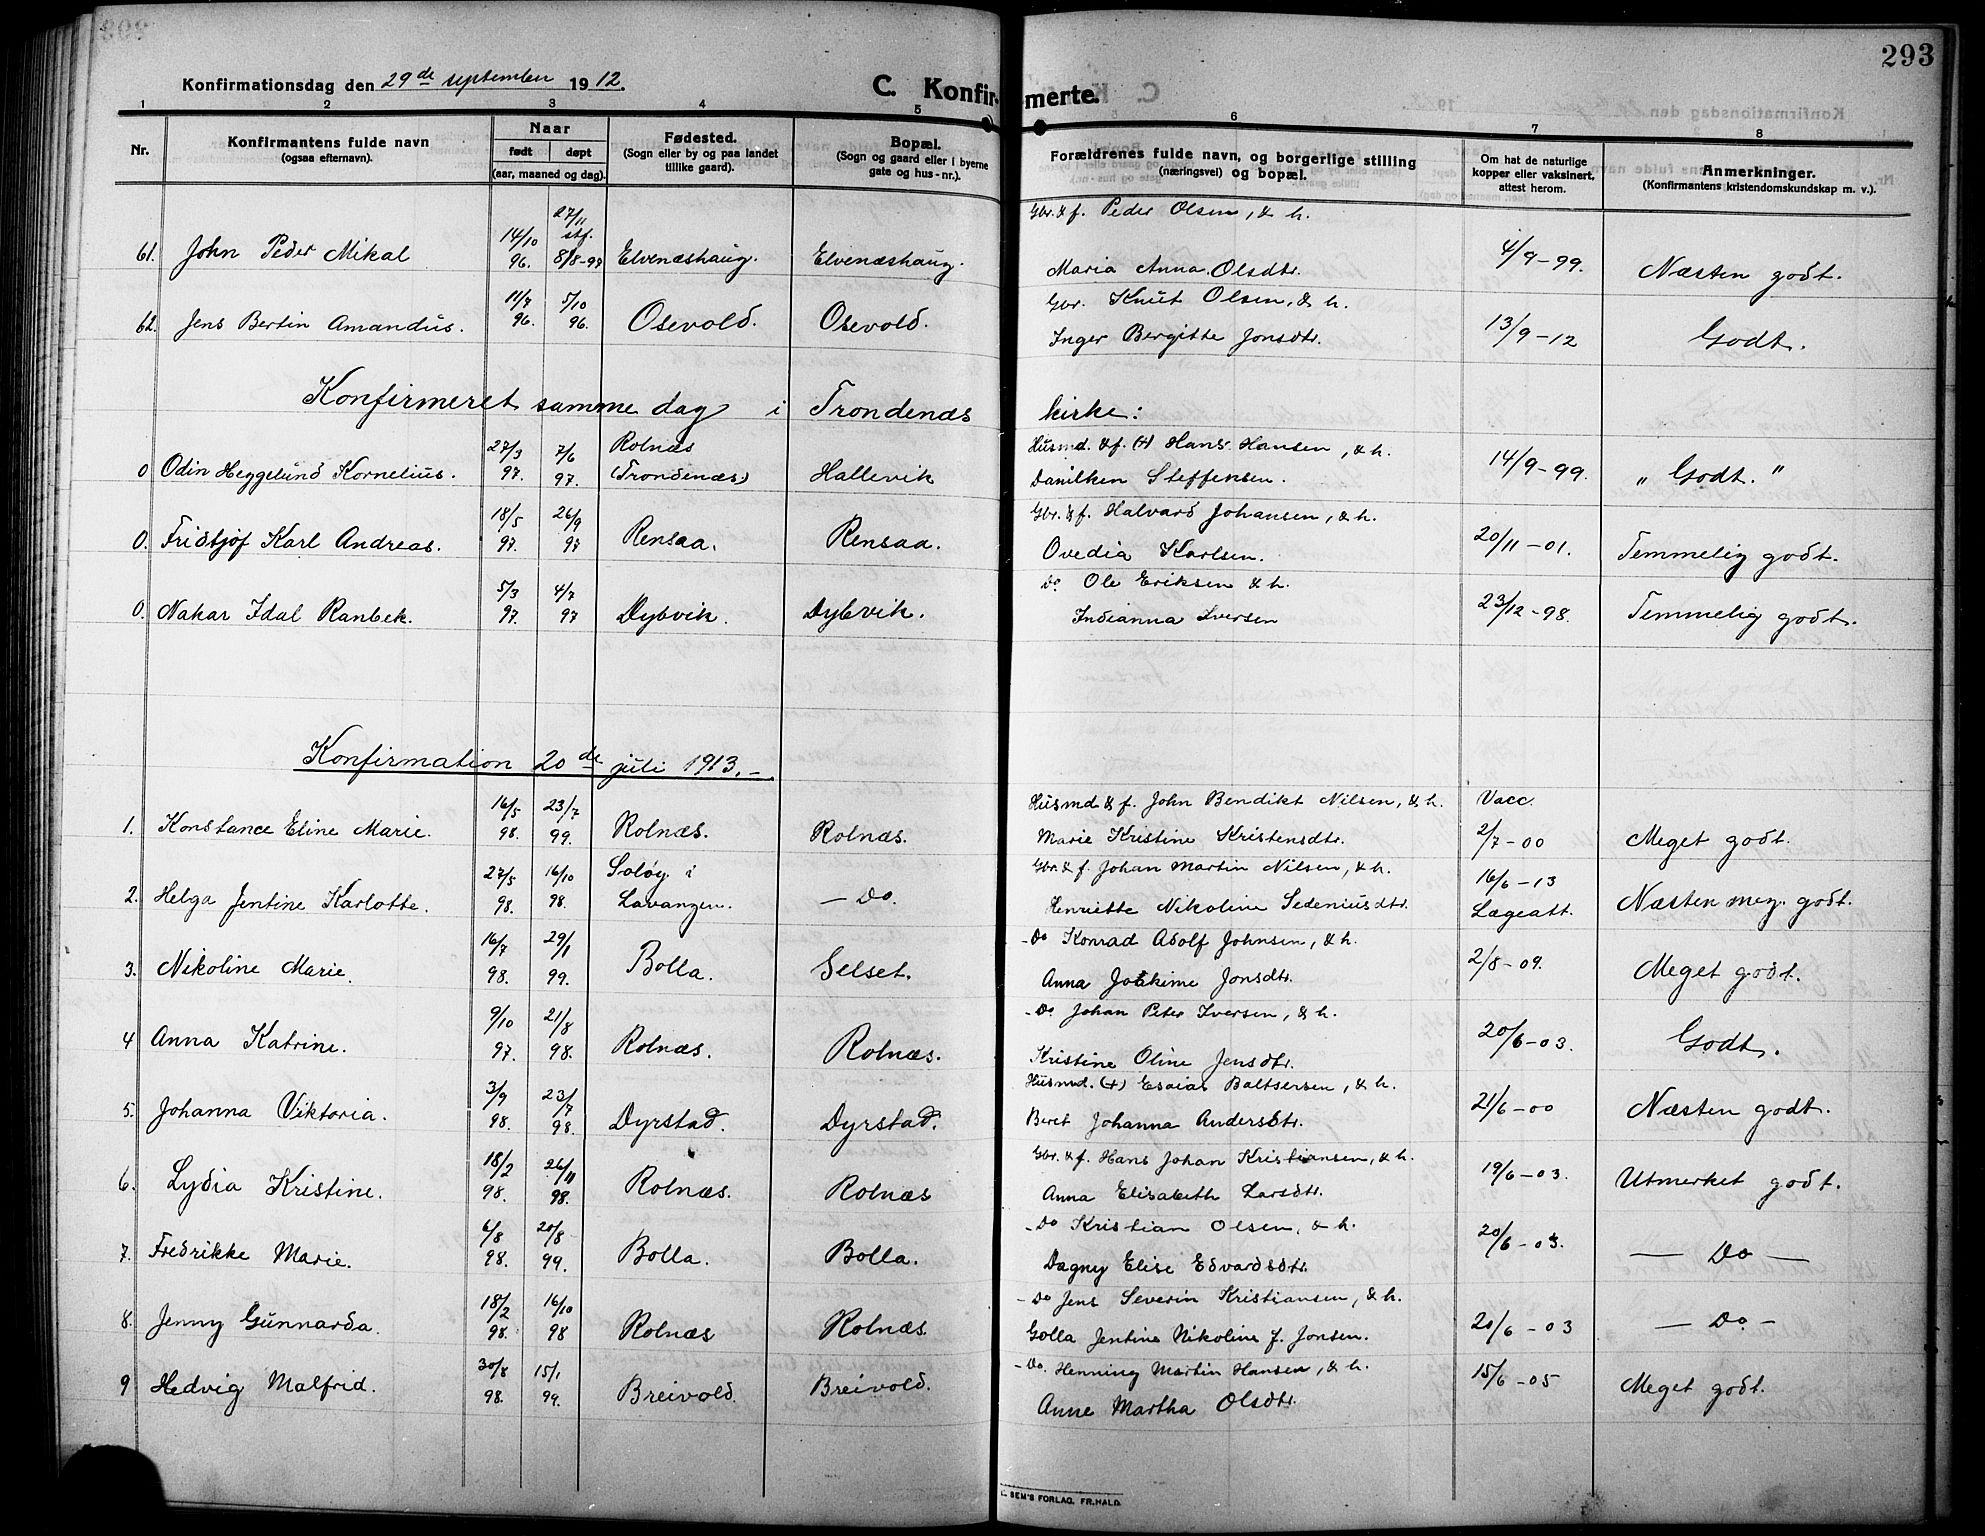 293
Konfirmationsdag den 29de september 1912.
C. Konfirmerte.
1 2 3 4 5 6 7 8
Nr.
Konfirmantens fulde navn (ogsaa efternavn).
Naar født døpt (aar, maaned og dag).
Fødested. (Sogn eller by og paa landet tillike gaard).
Bopæl. (Sogn og gaard eller i byerne gate og hus-nr.).
Forældrenes fulde navn, og borgerlige stilling (næringsvei) og bopæl.
Om hat de naturlige kopper eller vaksinert, attest herom.
Anmerkninger. (Konfirmantens kristendomskundskap m. v.).
61. John Peder Mikal 14/10 96. 27/11 stf. 8/8-97 Elvenæshaug. Elvenæshaug. Gbr. & f. Peder Olsen, & h. Maria Anna Olsdtr. 4/9-99. Næsten godt.
62. Jens Bertin Amandus. 11/7 96. 5/10 96. Osevold. Osevold. Gbr. Knut Olsen, & h. Inger Bergitte Jonsdtr. 13/9-12 Godt.
Konfirmeret samme dag i Trondenæs kirke:
0 Odin Heggelund Kornelius. 27/3 97. 7/6 97. Rolnæs (Trondenæs) Hallevik Husmd. & f. (+) Hans Hansen, & h. Danilken Steffensen. 14/9-99. " Godt. "
0. Fridtjof Karl Andreas. 18/5 97. 26/9 97 Rensaa. Rensaa. Gbr. & f. Halvard Johansen, & h. Ovedia Karlsen. 20/11-01. Temmelig godt.
0. Nakar Idal Ranbek. 5/3 97. 4/7 97 Dybvik. Dybvik. Do. Ole Eriksen & h. Indianna Iversen 23/12-98. Temmelig godt.
Konfirmation 20de juli 1913.-
1. Konstance Eline Marie. 16/5 98. 23/7 99. Rolnæs. Rolnæs. Husmd & f. John Bendikt Nilsen, & h. Marie Kristine Kristensdtr. Vacc. 2/7-00 Meget godt.
2. Helga Jentine Karlotte. 27/5 98. 16/10 98. Soløy i Lavangen. - Do. Gbr. & f. Johan Martin Nilsen, & h. Henriette Nikoline Sedeniusdtr. 16/6-13 Lægeatt. Næsten meg. godt.
3. Nikoline Marie. 16/7 98. 29/1 99. Bolla. Selset. - Do Konrad Adolf Johnsen, & h. Anna Joakime Jonsdtr. 2/8-09. Meget godt.
4 Anna Katrine. 9/10 97. 21/8 98. Rolnæs. Rolnæs. - Do. Johan Peter Iversen, & h. Kristine Oline Jensdtr. 20/6-03. Godt.
5. Johanna Viktoria. 3/9 98. 23/7 98. Dyrstad. Dyrstad. Husmd. (+) Esaias Baltsersen, & h. Beret Johanna Andersdtr. 21/6-00 Næsten godt.
6. Lydia Kristine. 18/2 98. 26/11 98. Rolnæs. Rolnæs Gbr. & f. Hans Johan Kristiansen, & h. Anna Elisabeth Larsdtr. 19/6-03. Utmerket godt.
7. Fredrikke Marie. 6/8 98. 20/8 99. Bolla. Bolla. - Do Kristian Olsen, & h. Dagny Elise Edvardsdtr. 20/6-03. - Do -
8. Jenny Gunnarda. 18/2 98. 16/10 98 Rolnæs Rolnæs. - Do Jens Severin Kristiansen, & h. Golla Jentine Nikoline f. Jonsen. 20/6-03 - Do. -
9 Hedvig Malfrid. 30/8 98. 15/1 99. Breivold. Breivold. - Do. Henning Martin Hansen, & h. Anne Martha Olsdtr. 15/6-05 Meget godt.
SEM'S FORLAG, FR.HALD.